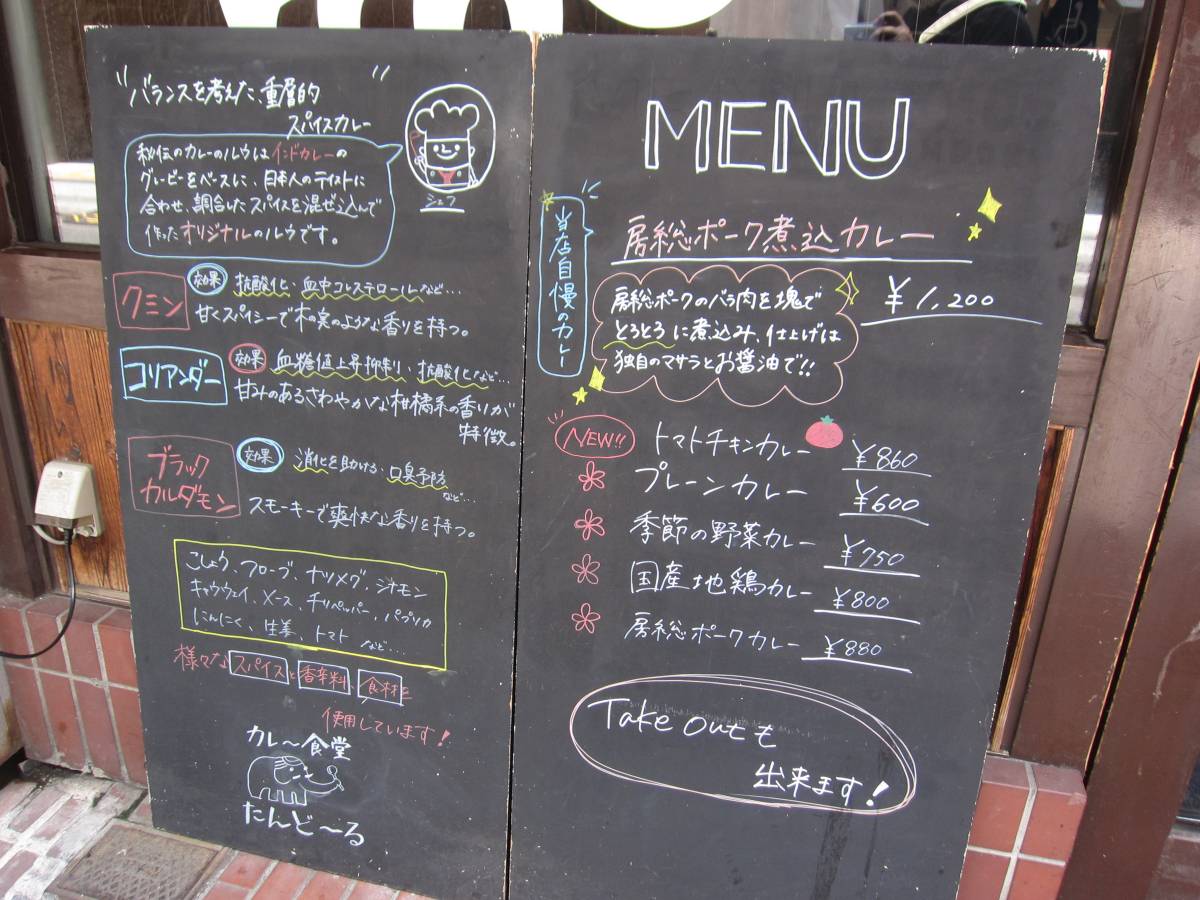 "バランスを考えた、重層的
スパイスカレー"
秘伝のカレーのルウはインドカレーの
グレービーをベースに、日本人のテイストに
合わせ、調合したスパイスを混ぜ込んで
作ったオリジナルのルウです。
シェフ
クミン
効果 抗酸化、血中コレステロールなど…
甘くスパイシーで木の実のような香りを持つ。
コリアンダー
効果 血糖値上昇抑制、抗酸化など…
甘みのあるさわやかな柑橘系の香りが
特徴。
ブラック
カルダモン
効果 消化を助ける、口臭予防
など…
スモーキーで爽快な香りを持つ。
こしょう、クローブ、ナツメグ、シナモン
キャラウェイ、メース、チリペッパー、パプリカ
にんにく、生姜、トマト など…
様々なスパイスと香辛料 食材を
使用しています!
カレ〜食堂
たんど〜る
MENU
当店自慢のカレー
房総ポーク煮込カレー
¥1,200
房総ポークのバラ肉を塊で
とろとろに煮込み、仕上げは
独自のマサラとお醤油で!!
NEW!! トマトチキンカレー ¥860
プレーンカレー ¥600
季節の野菜カレー ¥750
国産地鶏カレー ¥800
房総ポークカレー ¥880
Take outも
出来ます!